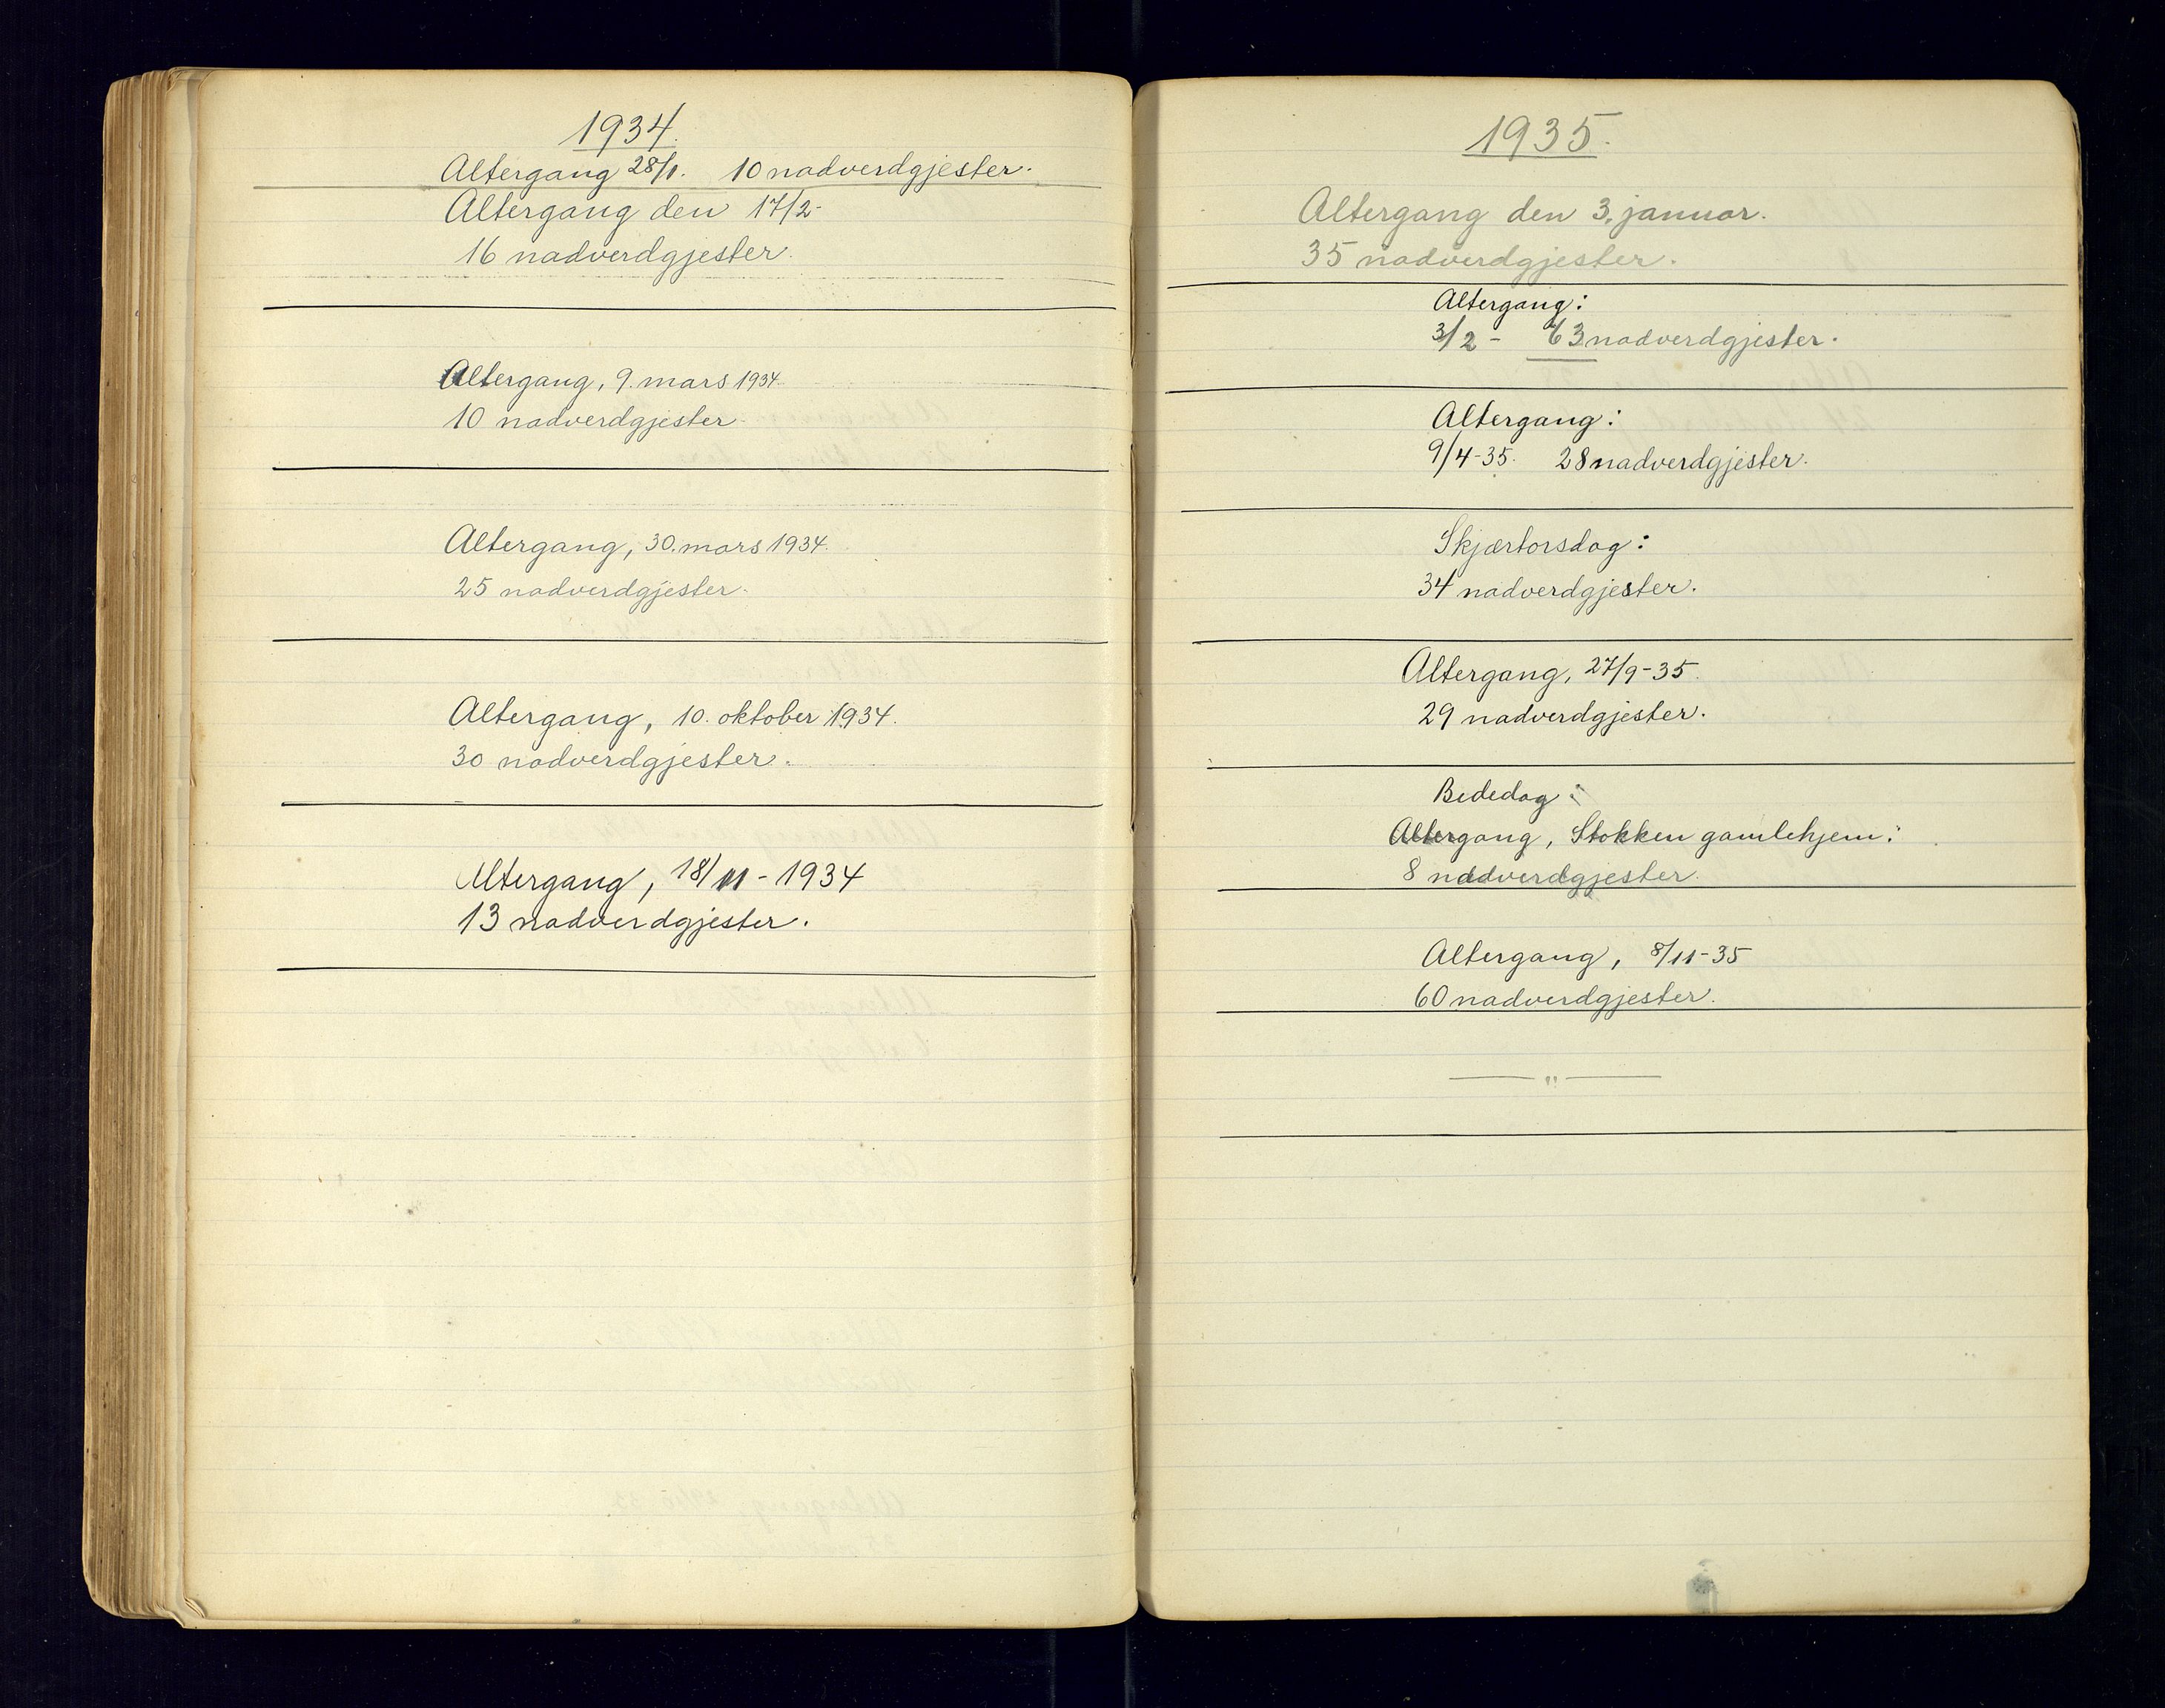 1934.
Altergang 28/1. 10 nadverdgjester.
Altergang den 17/2-
16 nadverdgjester.
Altergang, 9. mars 1934.
10 nadverdgjester.
Altergang, 30. mars 1934.
25 nadverdgjester.
Altergang, 10. oktober 1934.
30 nadverdgjester.
Altergang, 18/11 - 1934
13 nadverdgjester.
1935.
Altergang den 3. januar.
35 nadverdgjester.
Altergang:
3/2 - 63 nadverdgjester.
Altergang:
9/4-35. 28 nadverdgjester.
Skjærtorsdag:
34 nadverdgjester.
Altergang, 27/9-35.
29 nadverdgjester.
Bededag:
Altergang, Stokken gamlehjem:
8 nadverdgjester.
Altergang, 8/11-35
60 nadverdgjester.
— " —